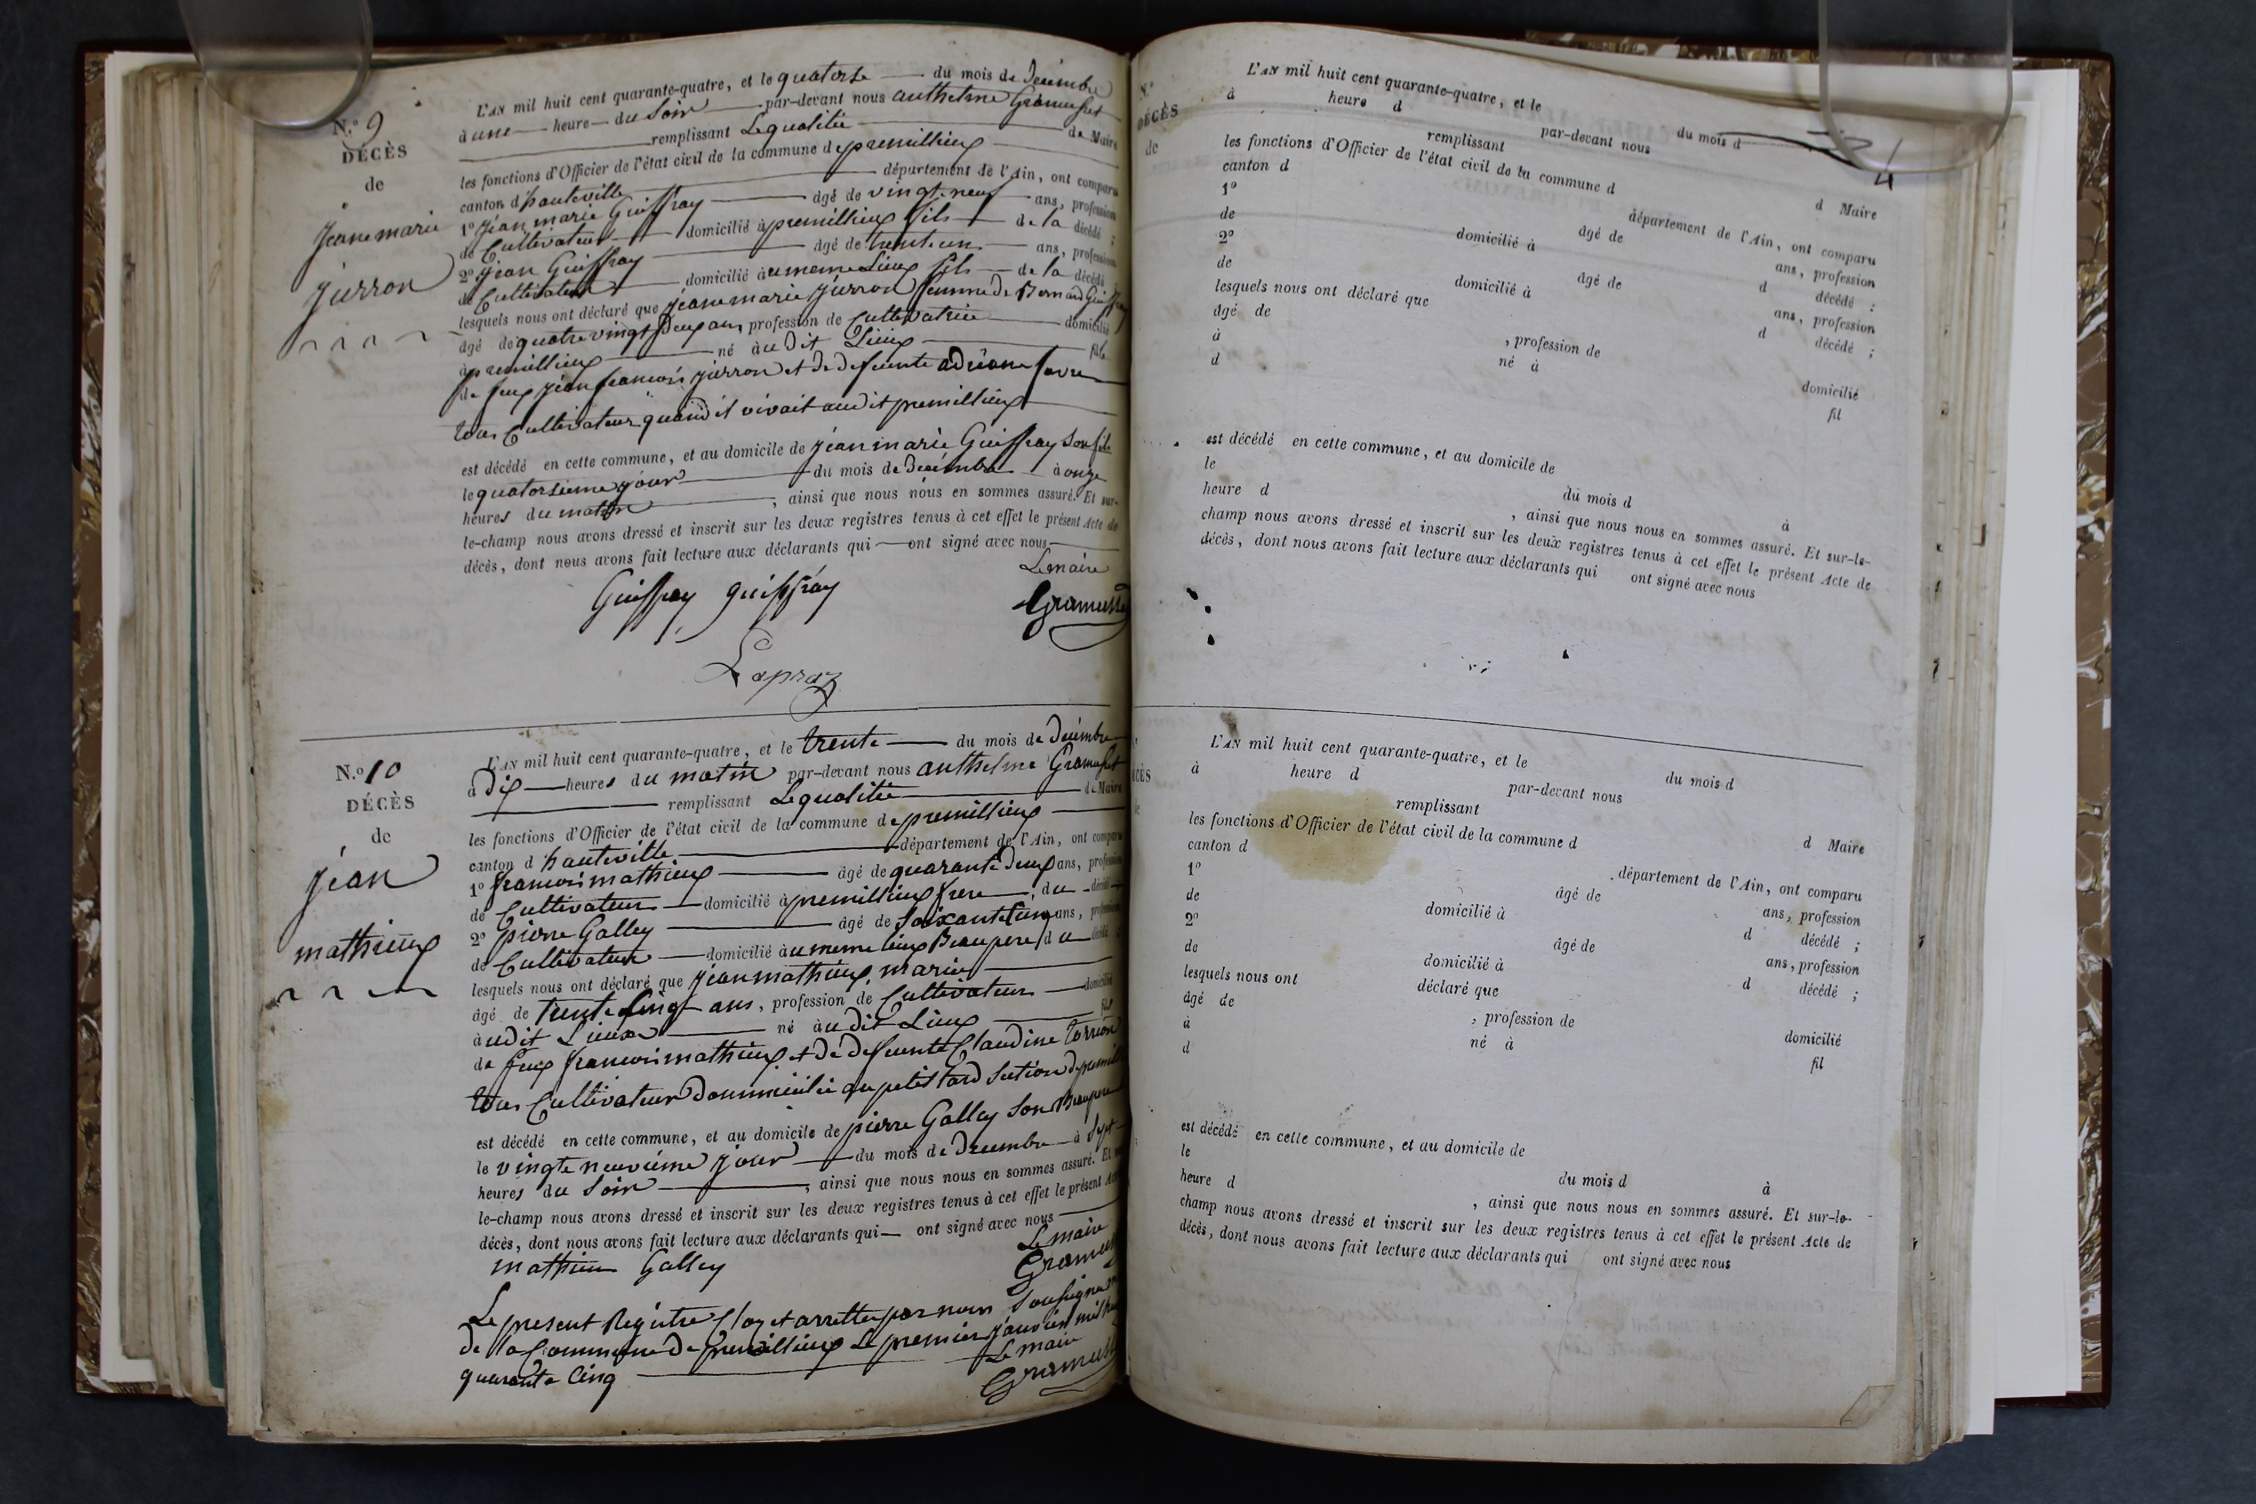 N.º 9
DÉCÈS
de
jeane marie
jurron
L'AN mil huit cent quarante-quatre, et le quatorse du mois de decembre
à une heure du soir par-devant nous anthelme Gramusset
remplissant Le qualitée de Maire
les fonctions d'Officier de l'état civil de la commune de premillieux
canton d'hauteville département de l'Ain, ont comparu
1º jean marie Guiffray âgé de vingt neuf ans, profession
de Cultivateur domicilié à premillieux fils de la décédé ;
2º jean Guiffray âgé de trente un ans, profession
de Cultivateur domicilié au meme Lieux fils de la décédé
lesquels nous ont déclaré que jeane marie jurron femme de Bernard Guiffray
âgé de quatre vingt deux ans, profession de Cultivatrice domicilié
à premillieux né au dit Lieux fils
de feux jean francois jurron et de defeunte adriane favre
tous Cultivateur quand il vivait audit premillieux
est décédé en cette commune, et au domicile de jean marie Guiffray son fils
le quatorsieme jour du mois de decembre à onze
heures du matin, ainsi que nous nous en sommes assuré. Et sur-
le-champ nous avons dressé et inscrit sur les deux registres tenus à cet effet le présent Acte de
décès, dont nous avons fait lecture aux déclarants qui ont signé avec nous
Le maire
Guiffray guiffray Gramusset
Lapraz
N.º 10
DÉCÈS
de
jean
mathieux
L'AN mil huit cent quarante-quatre, et le trente du mois de decembre
à dix heures du matin par-devant nous anthelme Gramusset
remplissant Le qualitée de Maire
les fonctions d'Officier de l'état civil de la commune de premillieux
canton d'hauteville département de l'Ain, ont comparu
1º francois mathieux âgé de quarante deux ans, profession
de Cultivateur domicilié à premillieux frere du décédé
2º pierre Galley âgé de soixante cinq ans, profession
de Cultivateur domicilié au meme lieux Beaupere du décédé
lesquels nous ont déclaré que jean mathieux marier
âgé de trente cinq ans, profession de Cultivateur domicilié
à udit Lieux né au dit Lieux fils
de feux francois mathieux et de defeunte Claudine
tous Cultivateur doumicilié au petit tard section de
est décédé en cette commune, et au domicile de pierre Galley son Beaupere
le vingte neuvieme jour du mois de decembre à sept
heures du soir, ainsi que nous nous en sommes assuré. Et
le-champ nous avons dressé et inscrit sur les deux registres tenus à cet effet le présent Acte
décès, dont nous avons fait lecture aux déclarants qui ont signé avec nous
Le maire
mathieu Galley Gramusset
Le present Registre Clos et arretter par nous soussigné
de la Commune de premillieux Le premier janvier mil huit
quarante Cinq Le maire
Gramusset
N.º
DÉCÈS
de
4
L'AN mil huit cent quarante-quatre, et le du mois d
à heure d par-devant nous
remplissant d Maire
les fonctions d'Officier de l'état civil de la commune d
canton d département de l'Ain, ont comparu
1º âgé de ans, profession
de domicilié à d décédé ;
2º âgé de ans, profession
de domicilié à d décédé ;
lesquels nous ont déclaré que
âgé de , profession de domicilié
à né à fil
d
est décédé en cette commune, et au domicile de
le du mois d à
heure d , ainsi que nous nous en sommes assuré. Et sur-le-
champ nous avons dressé et inscrit sur les deux registres tenus à cet effet le présent Acte de
décès, dont nous avons fait lecture aux déclarants qui ont signé avec nous
L'AN mil huit cent quarante-quatre, et le du mois d
à heure d par-devant nous
remplissant d Maire
les fonctions d'Officier de l'état civil de la commune d
canton d département de l'Ain, ont comparu
1º âgé de ans, profession
de domicilié à d décédé ;
2º âgé de ans, profession
de domicilié à d décédé ;
lesquels nous ont déclaré que
âgé de , profession de domicilié
à né à fil
d
est décédé en cette commune, et au domicile de
le du mois d à
heure d , ainsi que nous nous en sommes assuré. Et sur-le-
champ nous avons dressé et inscrit sur les deux registres tenus à cet effet le présent Acte de
décès, dont nous avons fait lecture aux déclarants qui ont signé avec nous